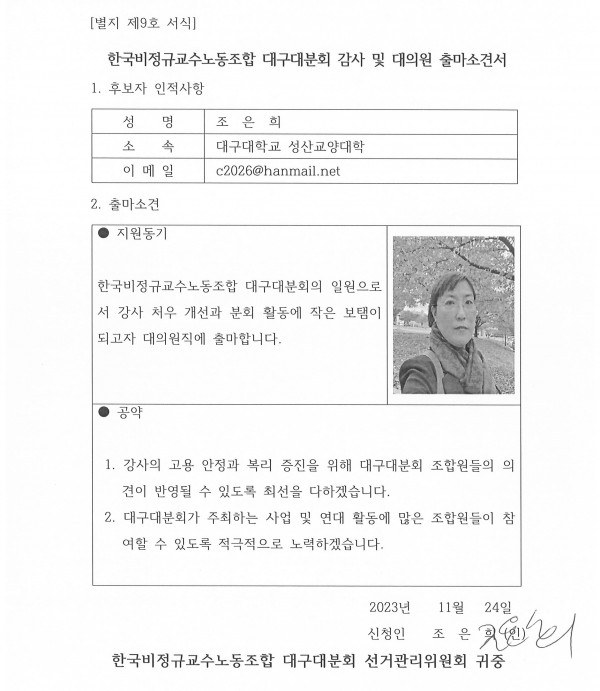 [별지 제9호 서식]
한국비정규교수노동조합 대구대분회 감사 및 대의원 출마소견서
1. 후보자 인적사항
성 명 조 은 희
소 속 대구대학교 성산교양대학
이 메 일 c2026@hanmail.net
2. 출마소견
● 지원동기
한국비정규교수노동조합 대구대분회의 일원으로
서 강사 처우 개선과 분회 활동에 작은 보탬이
되고자 대의원직에 출마합니다.
● 공약
1. 강사의 고용 안정과 복리 증진을 위해 대구대분회 조합원들의 의
견이 반영될 수 있도록 최선을 다하겠습니다.
2. 대구대분회가 주최하는 사업 및 연대 활동에 많은 조합원들이 참
여할 수 있도록 적극적으로 노력하겠습니다.
2023년 11월 24일
신청인 조 은 희 (인)
한국비정규교수노동조합 대구대분회 선거관리위원회 귀중